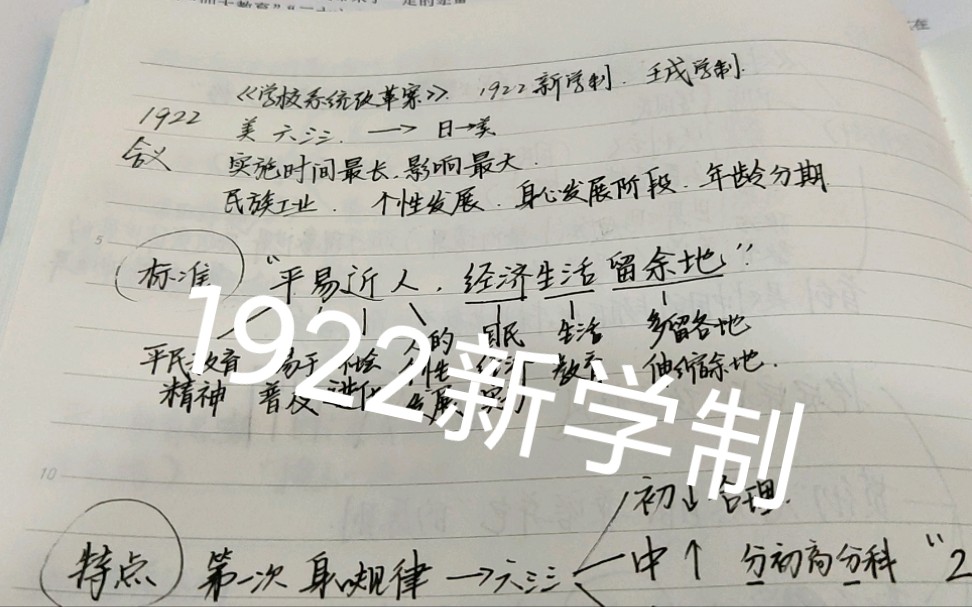 《学校系统改革案》. 1922新学制. 壬戌学制.
1922 美 六三三. → 日→美
含义 实施时间最长.影响最大.
民族工业. 个性发展. 身心发展阶段. 年龄分期
5
标准 "平易近人,经济生活留余地"
平民教育 易于 社会 人的 国民 生活 多留各地
精神 普及 进化 个性 经济 教育 伸缩余地.
发展
1922新学制
10
初↓合理.
特点 第一次 身心规律 → 六三三 中↑ 分初高分科 "2